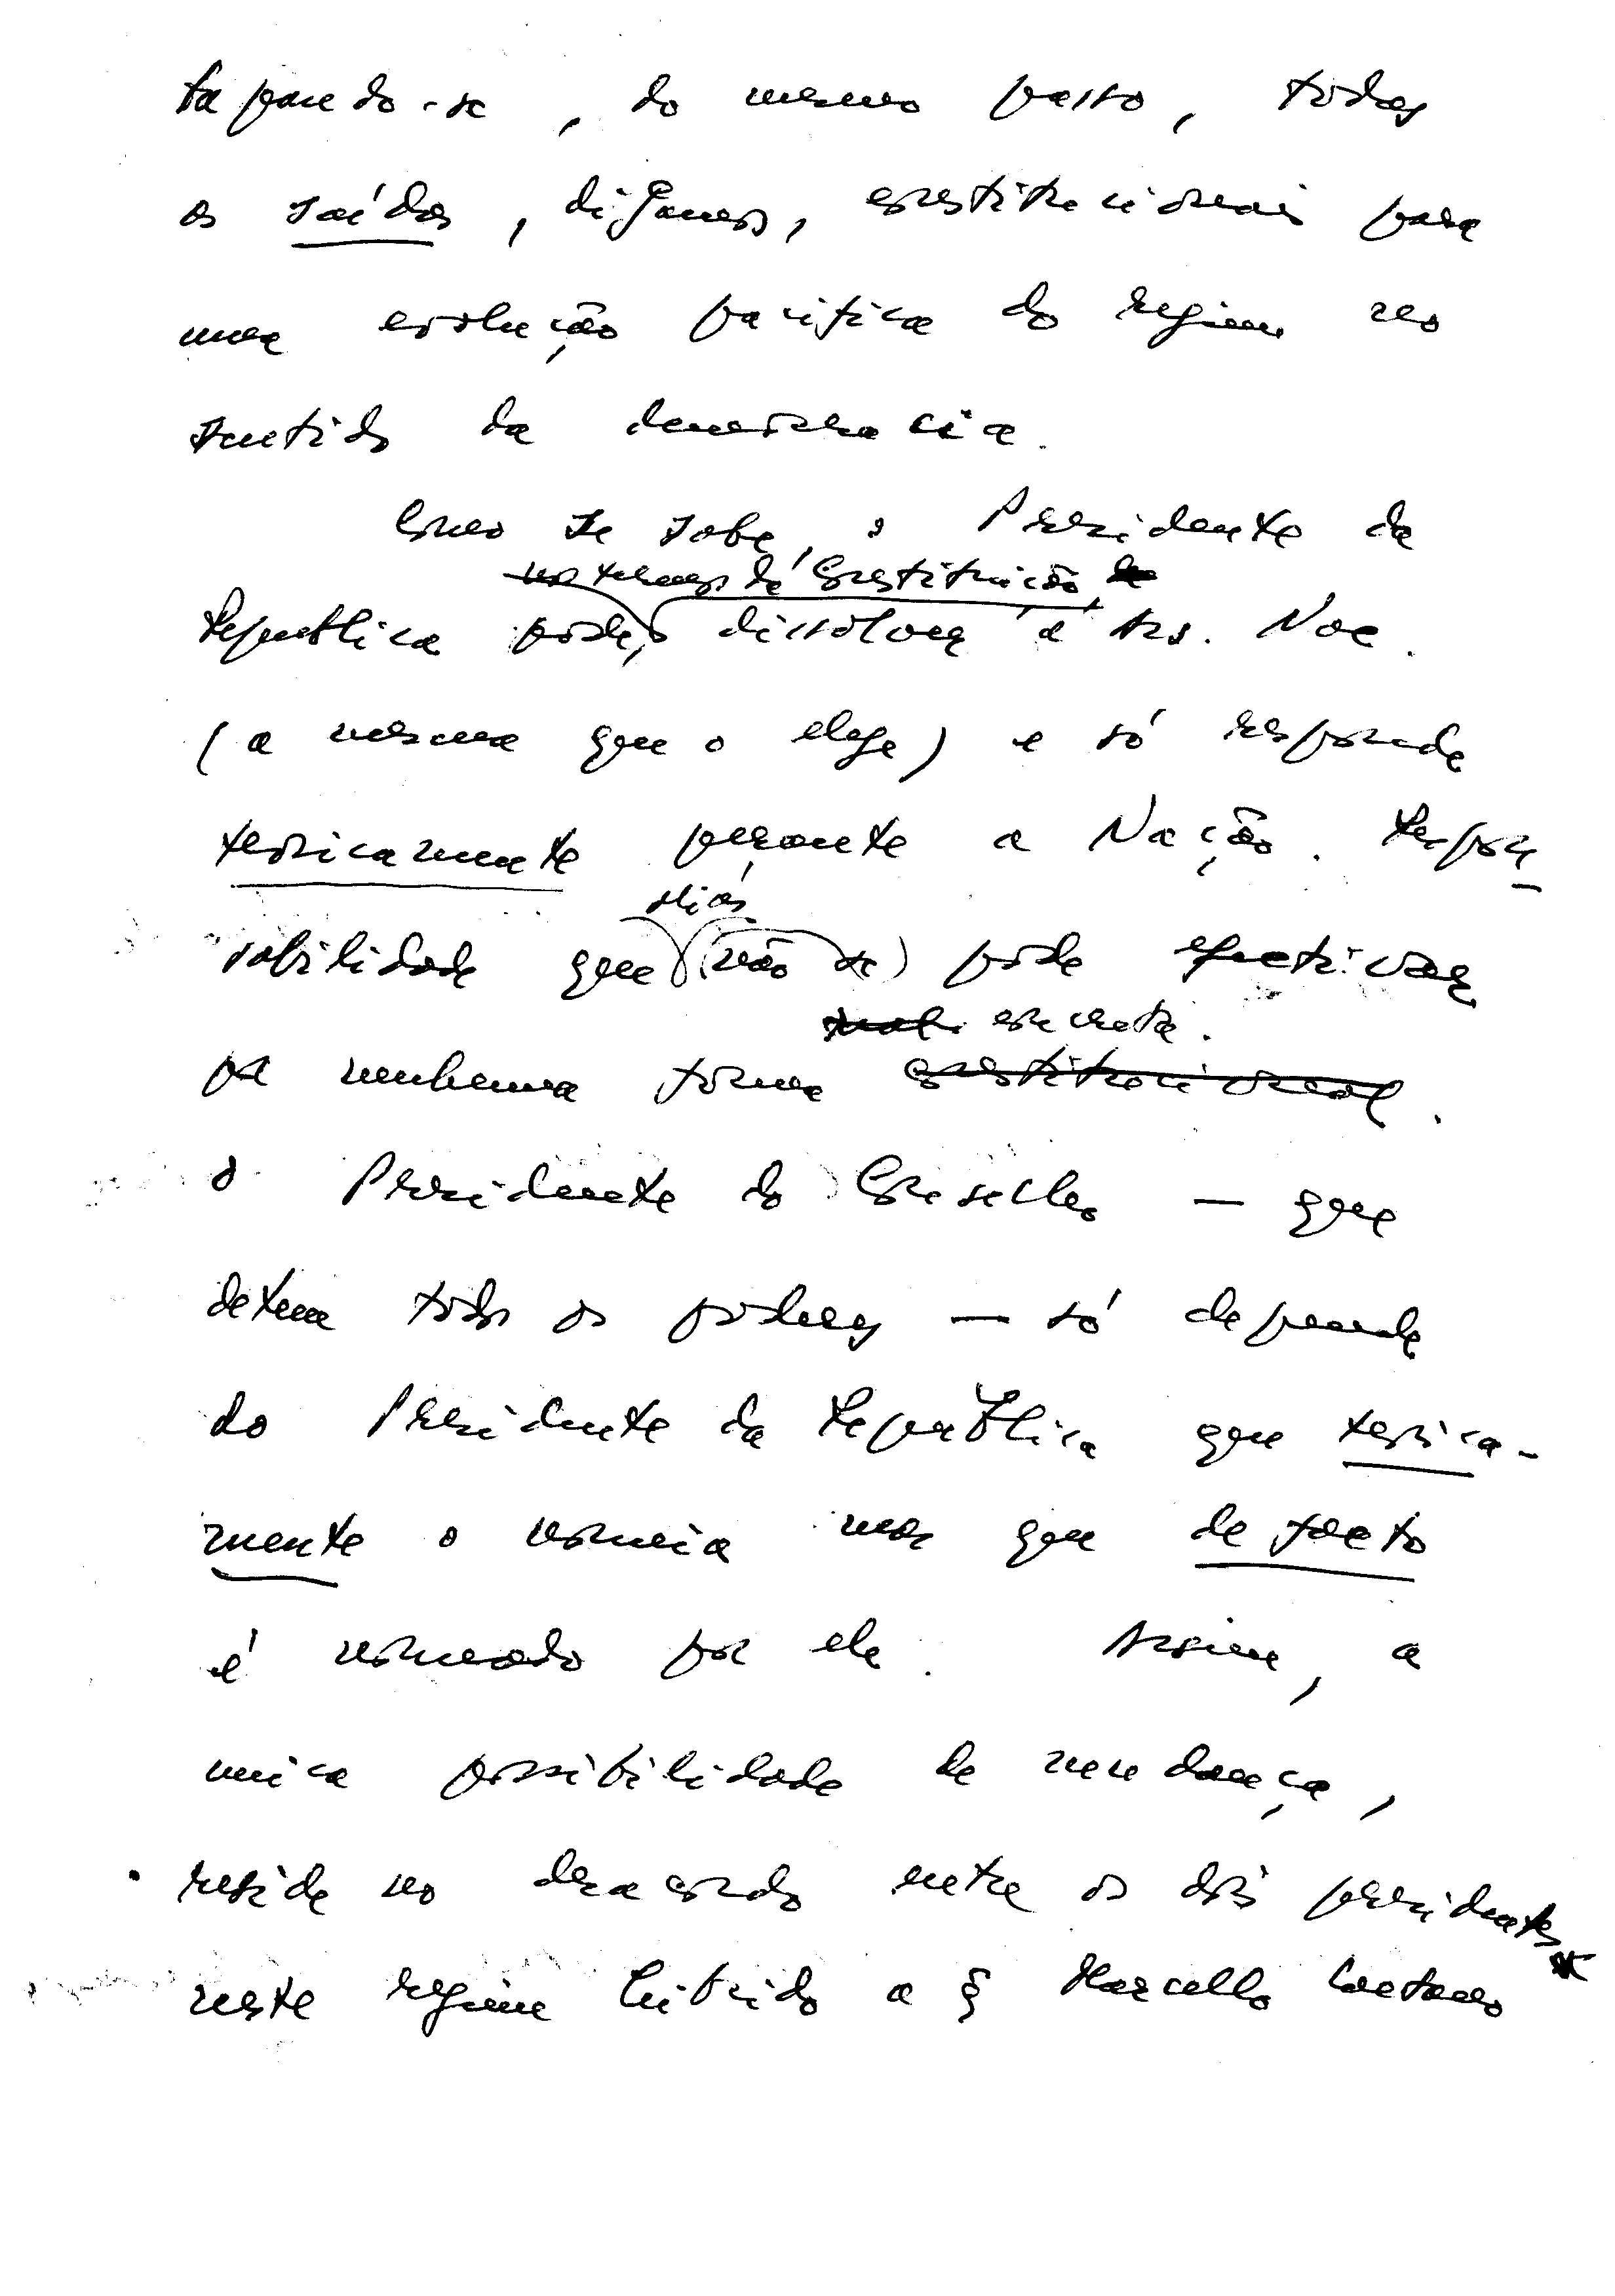 tapando-se, do mesmo passo, todas
as saídas, digamos, constitucionais para
uma evolução pacifica do regime no
sentido da democracia.
Como se sabe, o Presidente da
nos termos da Constituição,
Republica pode, dissolver a Ass. Nac.
(a mesma que o elege) e só responde
teoricamente perante a Nação. Respon-
aliás
sabilidade que (não se) pode efectivar
concreta.
por nenhuma forma constitucional.
O Presidente do Conselho — que
detem todos os poderes — só depende
do Presidente da Republica que teorica-
mente o nomeia mas que de facto
é nomeado por ele. Assim, a
unica possibilidade de mudança,
reside no desacordo entre os dois presidentes
neste regime hibrido a q Marcello Caetano